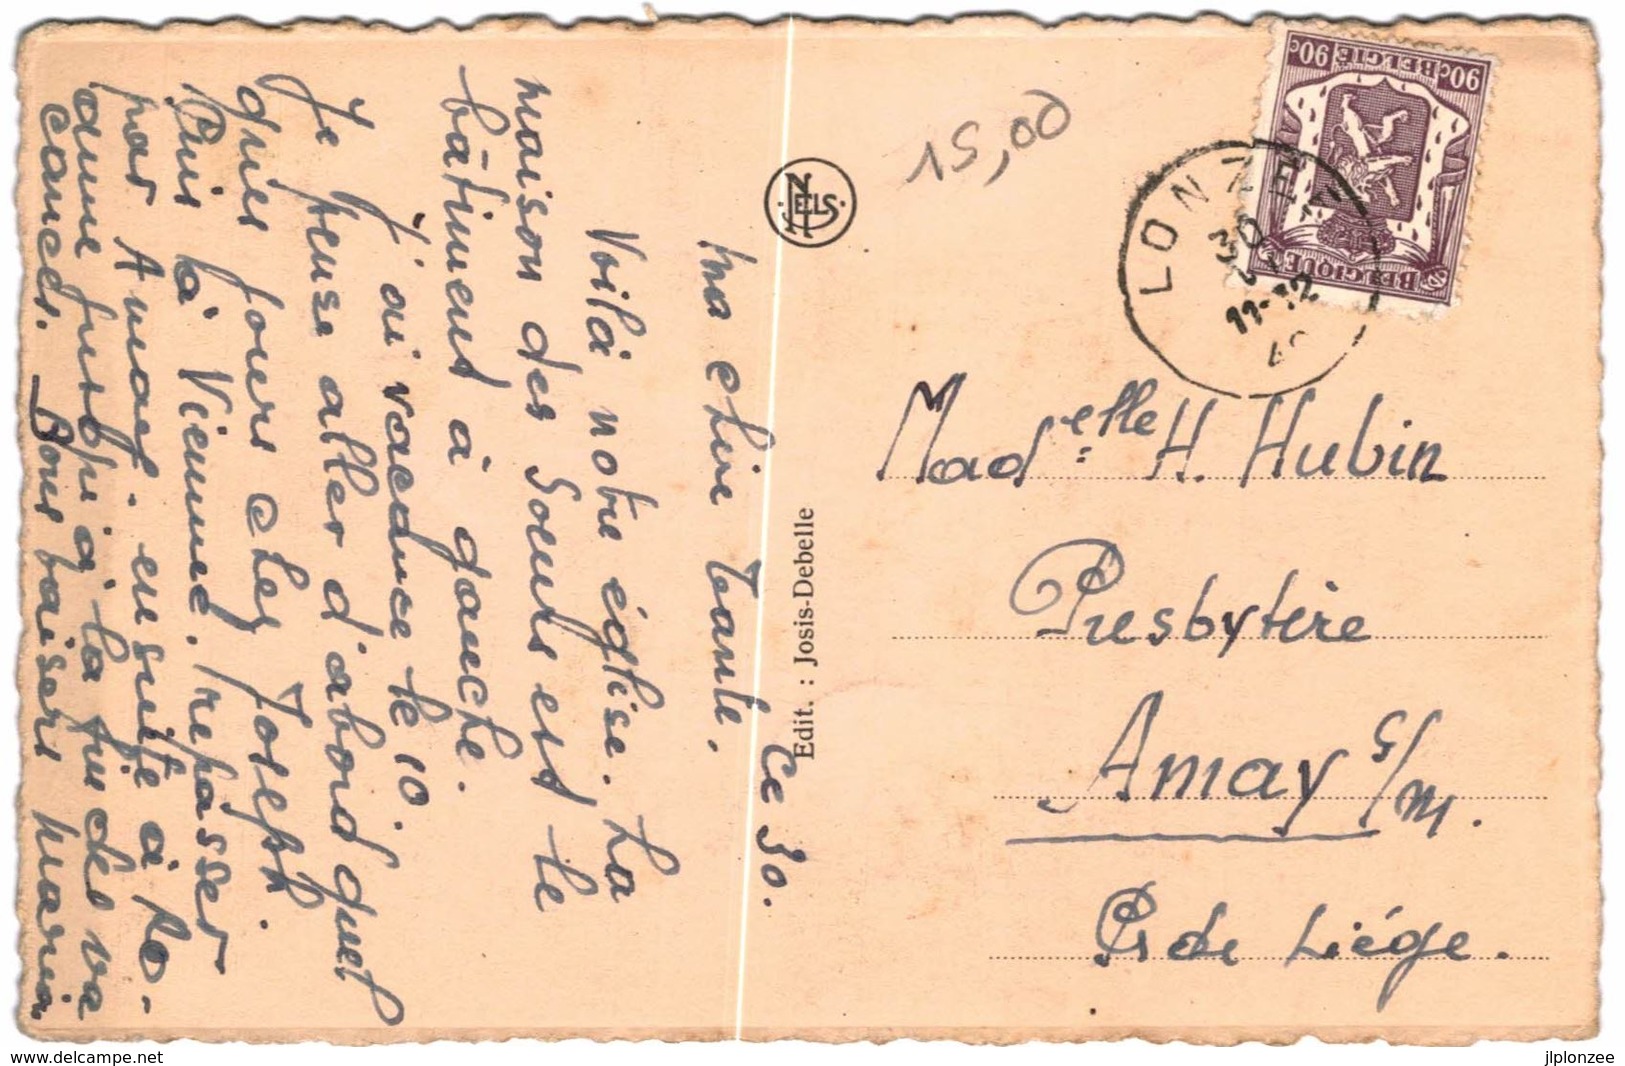 Ce 30.
Ma chère tante.
Voilà notre église. La
maison des Soeurs est le
bâtiment à gauche.
J'ai vacance le 10.
Je pense aller d'abord quel
ques jours chez Joseph.
Puis à Vienne, repasser
par Amay. ensuite à Ro-
anne jusqu'à la fin des va
cances. Bons baisers Maria
Edit. : Josis-Debelle
NELS
15,00
BELGIQUE
BELGIË
90c
90c
LONZEE
30
11-12
Madelle H. Hubin
Presbytère
Amay s/m.
Pr de Liége.
delcampe.net
jlplonzee